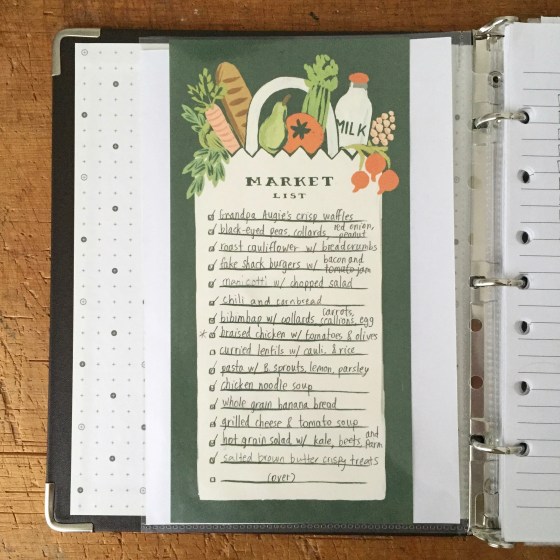 MILK
MARKET
LIST
Grandpa Augie's crisp waffles
black-eyed peas, collards, red onion, peanut
roast cauliflower w/ breadcrumbs
fake shack burgers w/ bacon and tomato jam
manicotti w/ chopped salad
chili and cornbread
bibimbap w/ collards, carrots, scallions, egg
* braised chicken w/ tomatoes & olives
curried lentils w/ cauli. & rice
pasta w/ B. sprouts, lemon, parsley
chicken noodle soup
whole grain banana bread
grilled cheese & tomato soup
hot grain salad w/ kale, beets, and parm
salted brown butter crispy treats
(over)